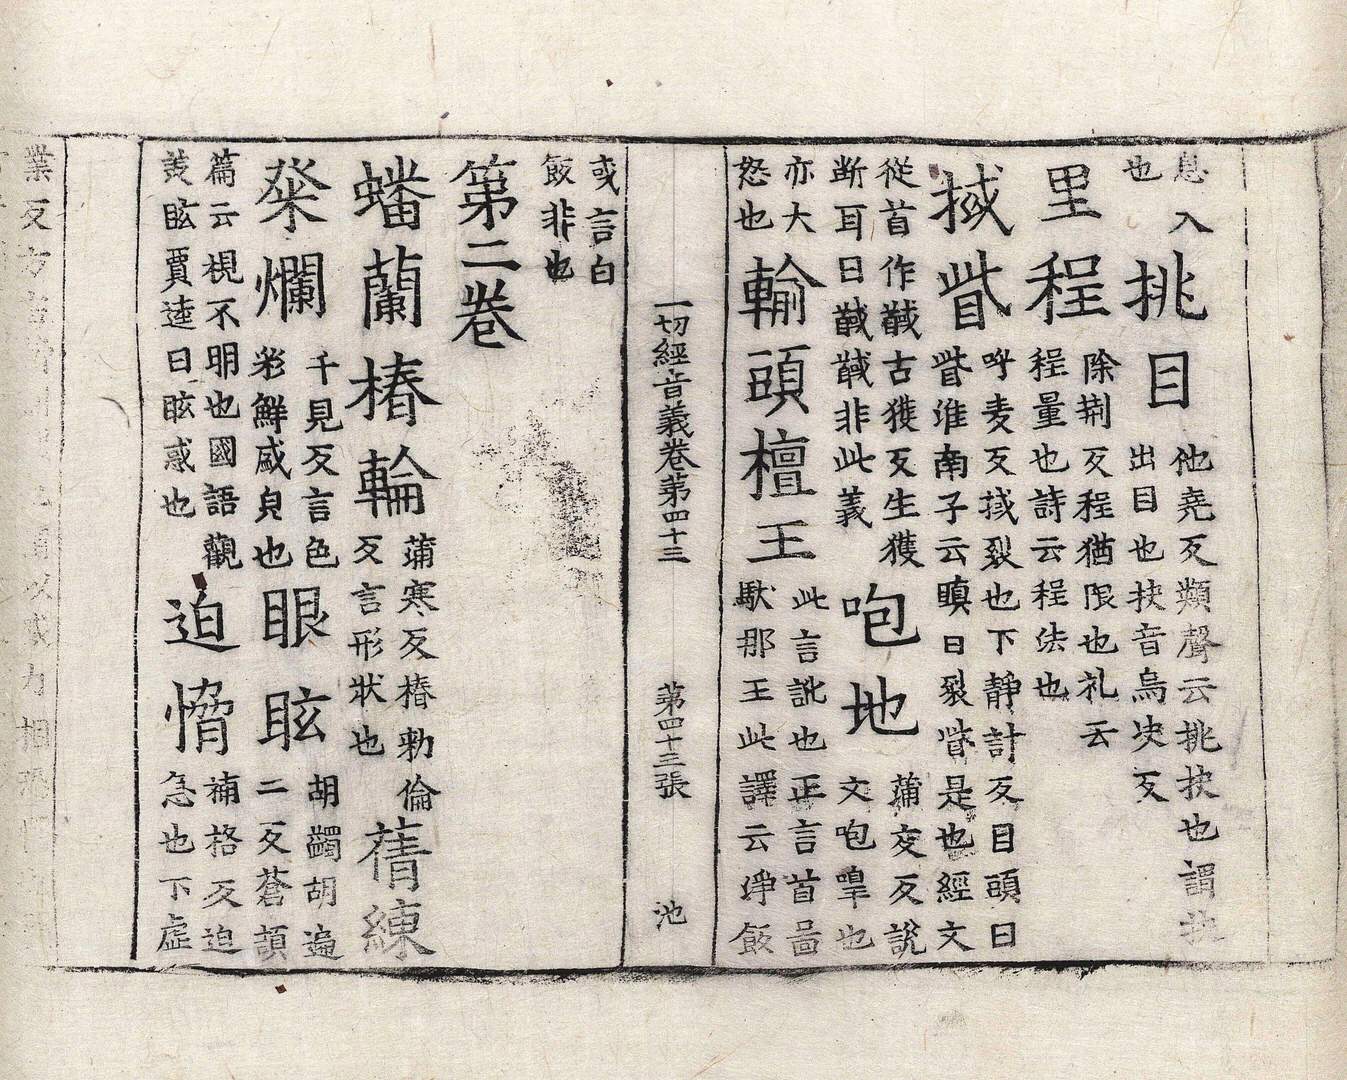 息入
也
挑目
他堯反類聲云挑抉也謂挑
出目也抉音烏决反
里程
除荆反程猶限也礼云
程量也詩云程法也
㧒眥
呼麦反㧒裂也下静計反目頭曰
眥淮南子云瞋目裂眥是也經文
從首作馘古獲反生獲
断耳曰馘馘非此義
咆地
蒲交反說
文咆嘷也
亦大
怒也
輸頭檀王
此言訛也正言首啚
馱那王此譯云淨飯
一切經音義卷第四十三
第四十三張
池
或言白
飯非也
第二卷
蟠蘭椿輪
蒲寒反椿勑倫
反言形狀也
蒨練
粲爛
千見反言色
彩鮮盛皃也
眼眩
胡蠲胡遍
二反蒼頡
篇云視不明也國語觀
羙眩賈逵曰眩惑也
迫愶
補格反迫
急也下虛
業反方言
以威力相恐